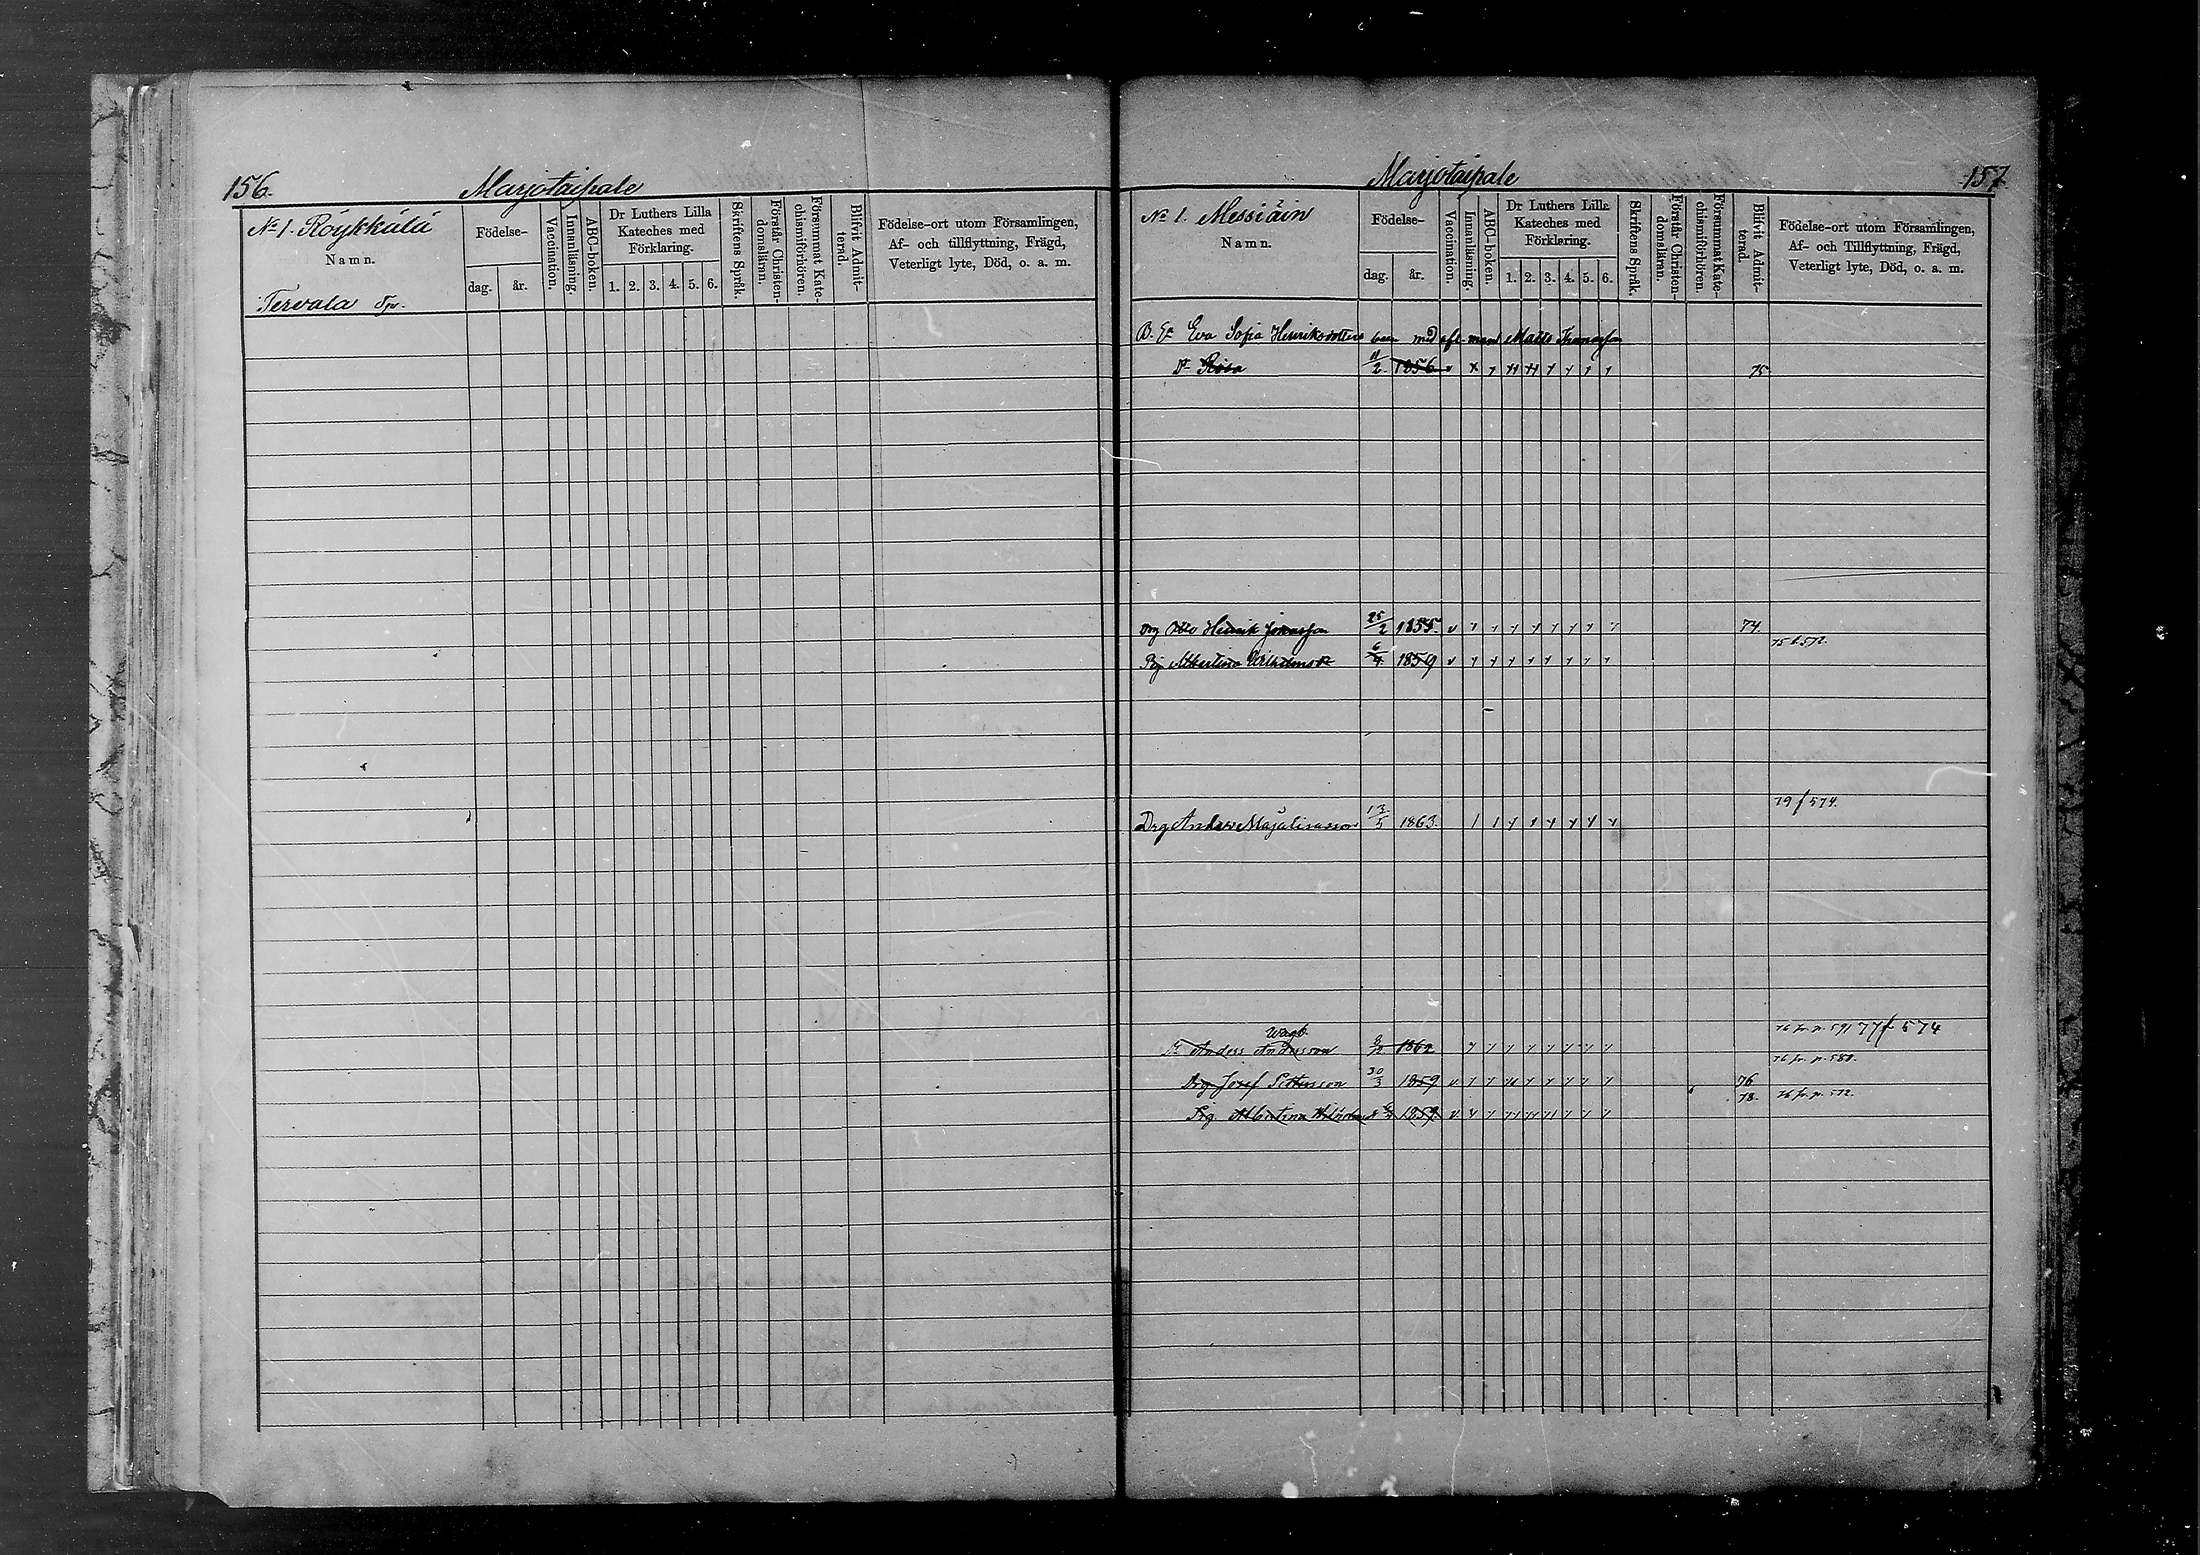 156.
Marjotaipale
No 1. Röykkälä
Namn.
Tervala
Födelse-
dag.
år.
Vaccination.
Innanläsning.
ABC-boken.
Dr Luthers Lilla
Kateches med
Förklaring.
1. 2. 3. 4. 5. 6.
Skriftens Språk.
Förstår Christen-
domsläran.
Försummat Kate-
chismiförhören.
Blifvit Admit-
terad.
Födelse-ort utom Församlingen,
Af- och tillflyttning, Frägd,
Veterligt lyte, Död, o. a. m.
Marjotaipale
157
No 1. Messiäin
Namn.
Födelse-
dag.
år.
Vaccination.
Innanläsning.
ABC-boken.
Dr Luthers Lilla
Kateches med
Förklaring.
1. 2. 3. 4. 5. 6.
Skriftens Språk.
Förstår Christen-
domsläran.
Försummat Kate-
chismiförhören.
Blifvit Admit-
terad.
Födelse-ort utom Församlingen,
Af- och Tillflyttning, Frägd,
Veterligt lyte, Död, o. a. m.
B. Ea Eva Sofia Henriksdotters barn med afl. Matts Thomasson
Dr Rosa 11/2 1856 75
Drg Otto Henrik Jonasson 25/2 1855. 74.
75 f 572.
Pig Albertina Vilhelmsdr 6/4 1859
79 f 574.
Drg Anders Majalisasson 13/5 1863.
76 fr. p. 591 77 f 574
Anders Andersson 1862
76 fr. p. 580.
Drg Josef Pettersson 30/3 1859 76
78. 76 fr. p. 572.
Pig Albertina 1859